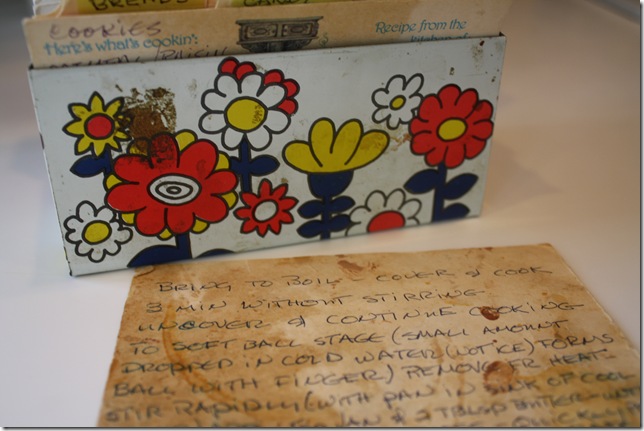 BREADS
CAKES
COOKIES
Here's what's cookin':
Recipe from the
kitchen of
RAISIN
BRING TO BOIL - COVER & COOK
3 MIN WITHOUT STIRRING
UNCOVER & CONTINUE COOKING
TO SOFT BALL STAGE (SMALL AMOUNT
DROPPED IN COLD WATER (NOT ICE) FORMS
BALL WITH FINGER) REMOVE FR HEAT-
STIR RAPIDLY (WITH PAN IN SINK OF COOL
& 2 TBLSP BUTTER
QUICKLY